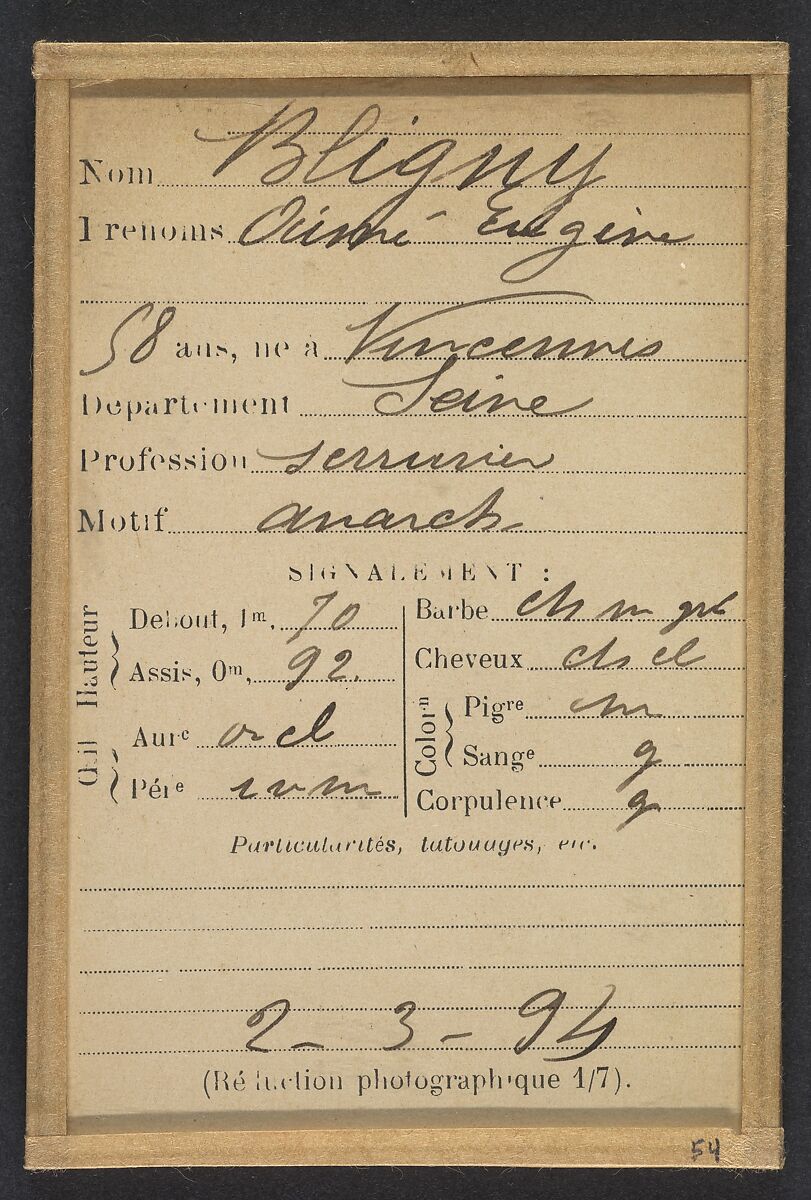 Nom Bligny
Prénoms Aimé Eugène
58 ans, né à Vincennes
Département Seine
Profession serrurier
Motif anarch
SIGNALEMENT :
Hauteur
Debout, 1m, 70
Assis, 0m, 92.
Œil
Aure or cl
Pére i v m
Barbe ch m gris
Cheveux ch cl
Colorn
Pigre m
Sange g
Corpulence g
Particularités, tatouages, etc.
2 - 3 - 94
(Réduction photographique 1/7).
54